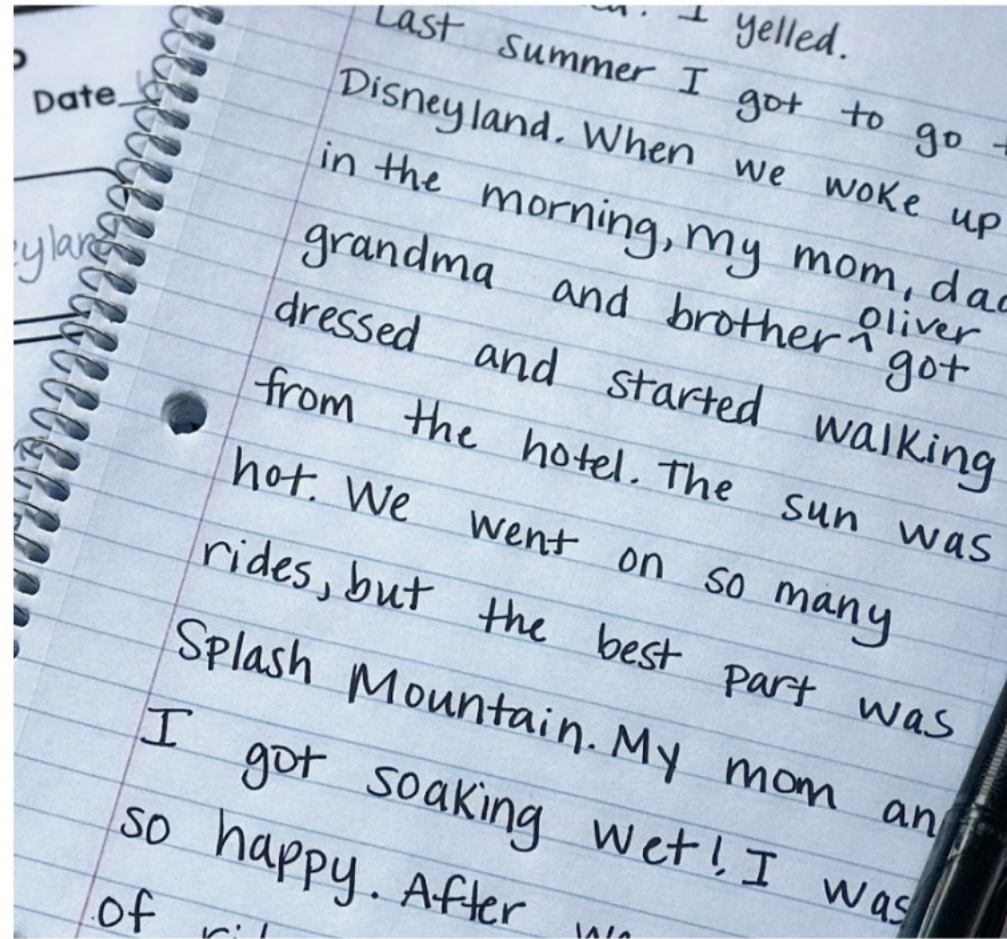 Date
I yelled.
Last summer I got to go
Disneyland. When we woke up
in the morning, my mom, dad
grandma and brother ^ Oliver got
dressed and started walking
from the hotel. The sun was
hot. We went on so many
rides, but the best part was
Splash Mountain. My mom an
I got soaking wet! I was
so happy. After we
of